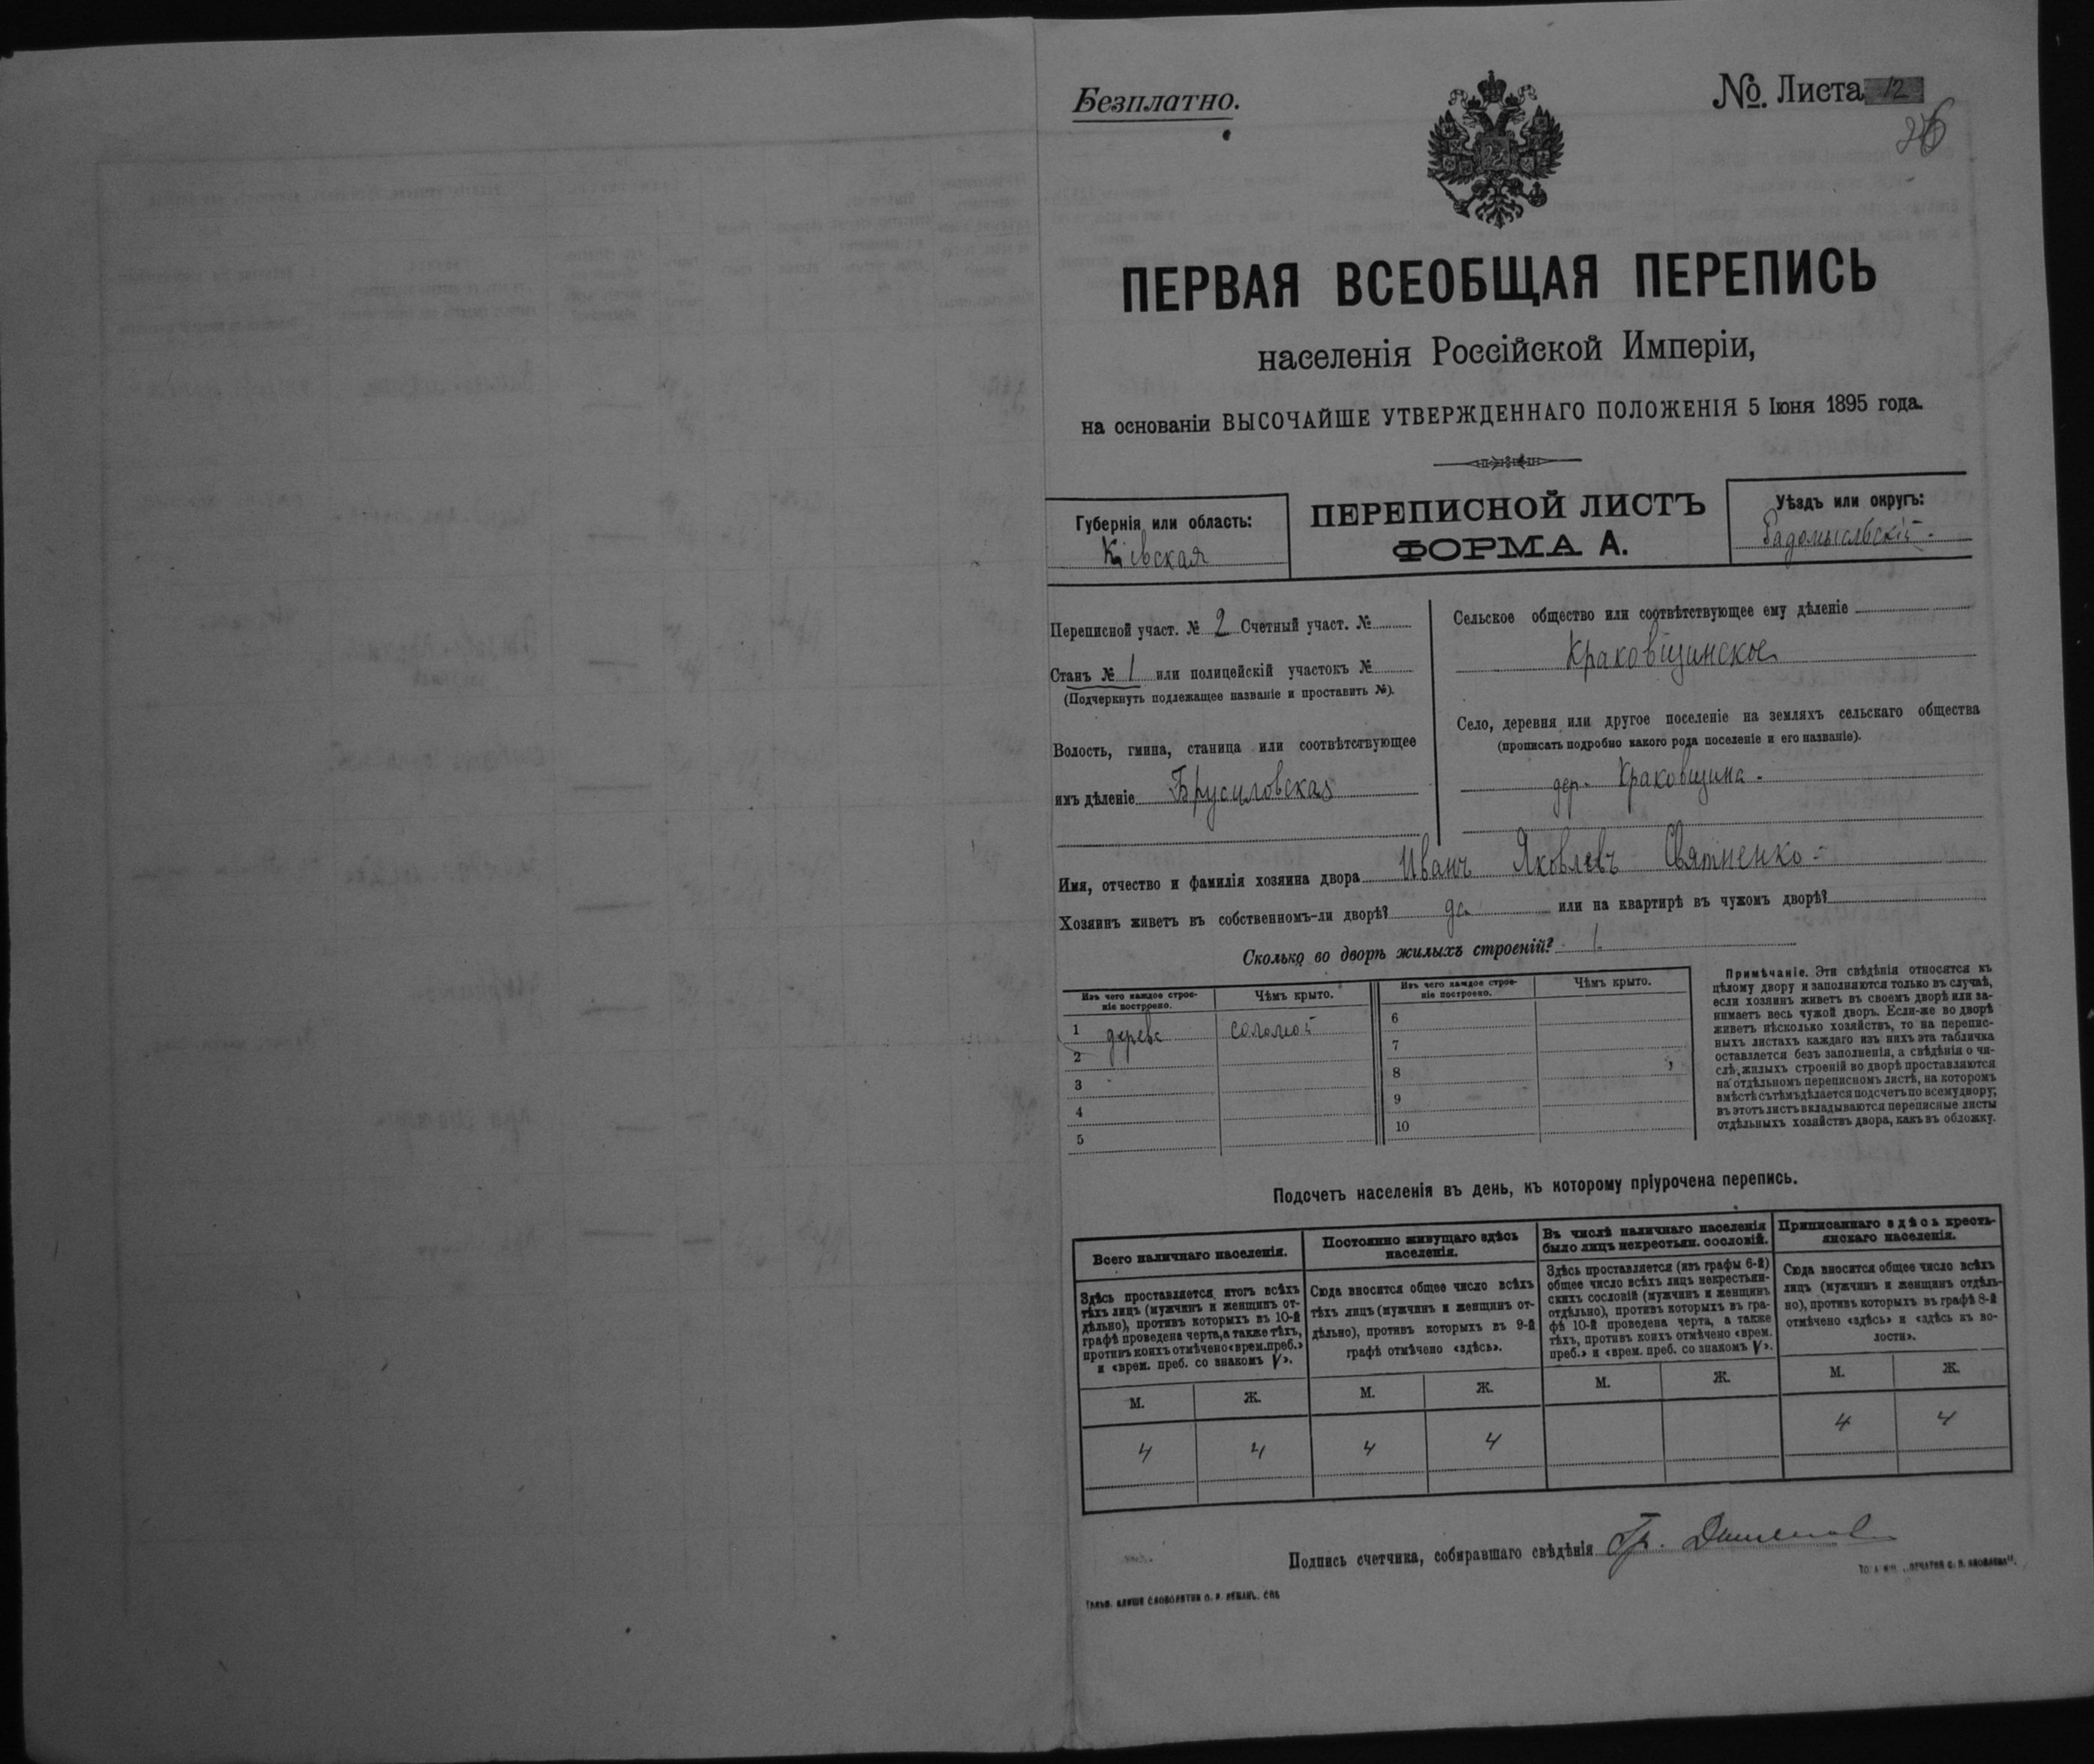 Безплатно.
№. Листа 12
26
ПЕРВАЯ ВСЕОБЩАЯ ПЕРЕПИСЬ
населенія Россійской Имперіи,
на основаніи ВЫСОЧАЙШЕ УТВЕРЖДЕННАГО ПОЛОЖЕНІЯ 5 Іюня 1895 года.
Губернія или область:
Кіевская
ПЕРЕПИСНОЙ ЛИСТЪ
ФОРМА А.
Уѣздъ или округъ:
Радомысльскій
Переписной участ. № 2 Счетный участ. №
Станъ № 1 или полицейскій участокъ №
(Подчеркнуть подлежащее названіе и проставить №).
Волость, гмина, станица или соотвѣтствующее
имъ дѣленіе Брусиловская
Сельское общество или соотвѣтствующее ему дѣленіе
Краковщинское
Село, деревня или другое поселеніе на земляхъ сельскаго общества
(прописать подробно какого рода поселеніе и его названіе).
дер. Краковщина.
Имя, отчество и фамилія хозяина двора Иванъ Яковлевъ Святненко
Хозяинъ живетъ въ собственномъ-ли дворѣ? да или на квартирѣ въ чужомъ дворѣ?
Сколько во дворѣ жилыхъ строеній? 1.
Изъ чего каждое строе-
ніе построено.
Чѣмъ крыто.
Изъ чего каждое строе-
ніе построено.
Чѣмъ крыто.
1 дерева соломой
2
3
4
5
6
7
8
9
10
Примѣчаніе. Эти свѣдѣнія относятся къ
цѣлому двору и заполняются только въ случаѣ,
если хозяинъ живетъ въ своемъ дворѣ или за-
нимаетъ весь чужой дворъ. Если-же во дворѣ
живетъ нѣсколько хозяйствъ, то на перепис-
ныхъ листахъ каждаго изъ нихъ эта табличка
оставляется безъ заполненія, а свѣдѣнія о чи-
слѣ жилыхъ строеній во дворѣ проставляются
на отдѣльномъ переписномъ листѣ, на которомъ
вмѣстѣ съ тѣмъ дѣлается подсчетъ по всему двору;
въ этотъ листъ вкладываются переписные листы
отдѣльныхъ хозяйствъ двора, какъ въ обложку.
Подсчетъ населенія въ день, къ которому пріурочена перепись.
Всего наличнаго населенія.
Здѣсь проставляется итогъ всѣхъ
тѣхъ лицъ (мужчинъ и женщинъ от-
дѣльно), противъ которыхъ въ 10-й
графѣ проведена черта, а также тѣхъ,
противъ коихъ отмѣчено «врем. преб.»
и «врем. преб. со знакомъ V».
Постоянно живущаго здѣсь
населенія.
Сюда вносится общее число всѣхъ
тѣхъ лицъ (мужчинъ и женщинъ от-
дѣльно), противъ которыхъ въ 9-й
графѣ отмѣчено «здѣсь».
Въ числѣ наличнаго населенія
было лицъ некрестьян. сословій.
Здѣсь проставляется (изъ графы 6-й)
общее число всѣхъ лицъ некрестьян-
скихъ сословій (мужчинъ и женщинъ
отдѣльно), противъ которыхъ въ гра-
фѣ 10-й проведена черта, а также
тѣхъ, противъ коихъ отмѣчено «врем.
преб.» и «врем. преб. со знакомъ V».
Приписаннаго здѣсь кресть-
янскаго населенія.
Сюда вносится общее число всѣхъ
лицъ (мужчинъ и женщинъ отдѣль-
но), противъ которыхъ въ графѣ 8-й
отмѣчено «здѣсь» и «здѣсь къ во-
лости».
М. Ж. М. Ж. М. Ж. М. Ж.
4 4 4 4 4 4
Подпись счетчика, собиравшаго свѣдѣнія Гр.